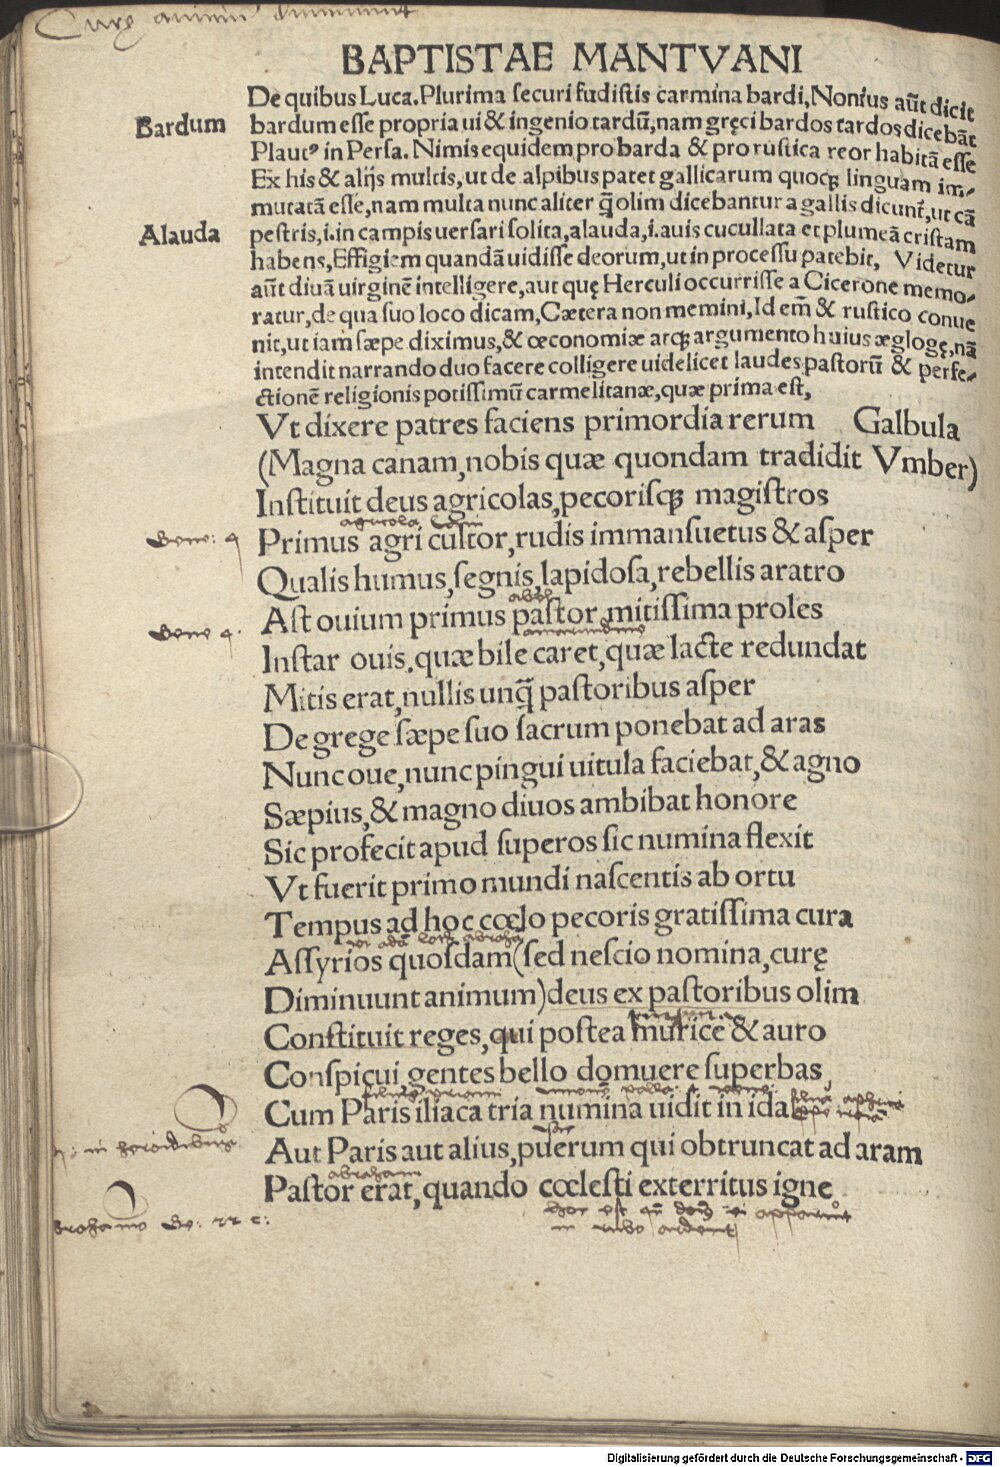 Curę animum diminuunt
BAPTISTAE MANTVANI
De quibus Luca. Plurima securi fudistis carmina bardi, Nonius aūt dicit
Bardum
bardum esse propria ui & ingenio tardū, nam gręci bardos tardos dicebāt
Plautꝰ in Persa. Nimis equidem pro barda & pro rustica reor habitā esse
Ex his & alijs multis, ut de alpibus patet gallicarum quoqꝫ linguam im-
mutatā esse, nam multa nunc aliter q̄ olim dicebantur a gallis dicunt̄, ut cā
Alauda
pestris, i. in campis uersari solita, alauda, i. auis cucullata et plumeā cristam
habens, Effigiem quandā uidisse deorum, ut in processu patebit, Videtur
aūt diuā uirginē intelligere, aut quę Herculi occurrisse a Cicerone memo-
ratur, de qua suo loco dicam, Cætera non memini, Id em̄ & rustico conue
nit, ut iam sæpe diximus, & œconomiæ atqꝫ argumento huius ægloge, nā
intendit narrando duo facere colligere uidelicet laudes pastorū & perfe-
ctionē religionis potissimū carmelitanæ, quæ prima est,
Vt dixere patres faciens primordia rerum Galbula
(Magna canam, nobis quæ quondam tradidit Vmber)
Instituit deus agricolas, pecorisqꝫ magistros
agricola Cain
Gene: 4
Primus agri cultor, rudis immansuetus & asper
Qualis humus, segnis, lapidosa, rebellis aratro
abel
Gene 4.
Ast ouium primus pastor, mitissima proles
amaritudine
Instar ouis, quæ bile caret, quæ lacte redundat
Mitis erat, nullis unq̄ pastoribus asper
De grege sæpe suo sacrum ponebat ad aras
Nunc oue, nunc pingui uitula faciebat, & agno
Sæpius, & magno diuos ambibat honore
Sic profecit apud superos sic numina flexit
Vt fuerit primo mundi nascentis ab ortu
Tempus ad hoc cœlo pecoris gratissima cura
abrahā
Assyrios quosdam (sed nescio nomina, curę
Diminuunt animum) deus ex pastoribus olim
Constituit reges, qui postea murice & auro
Conspicui, gentes bello domuere superbas
filius priami
Cum Paris iliaca tria numina uidit in ida
in heroidibus
Aut Paris aut alius, puerum qui obtruncat ad aram
abraham
Pastor erat, quando cœlesti exterritus igne
hoc est
in rubo ardenti